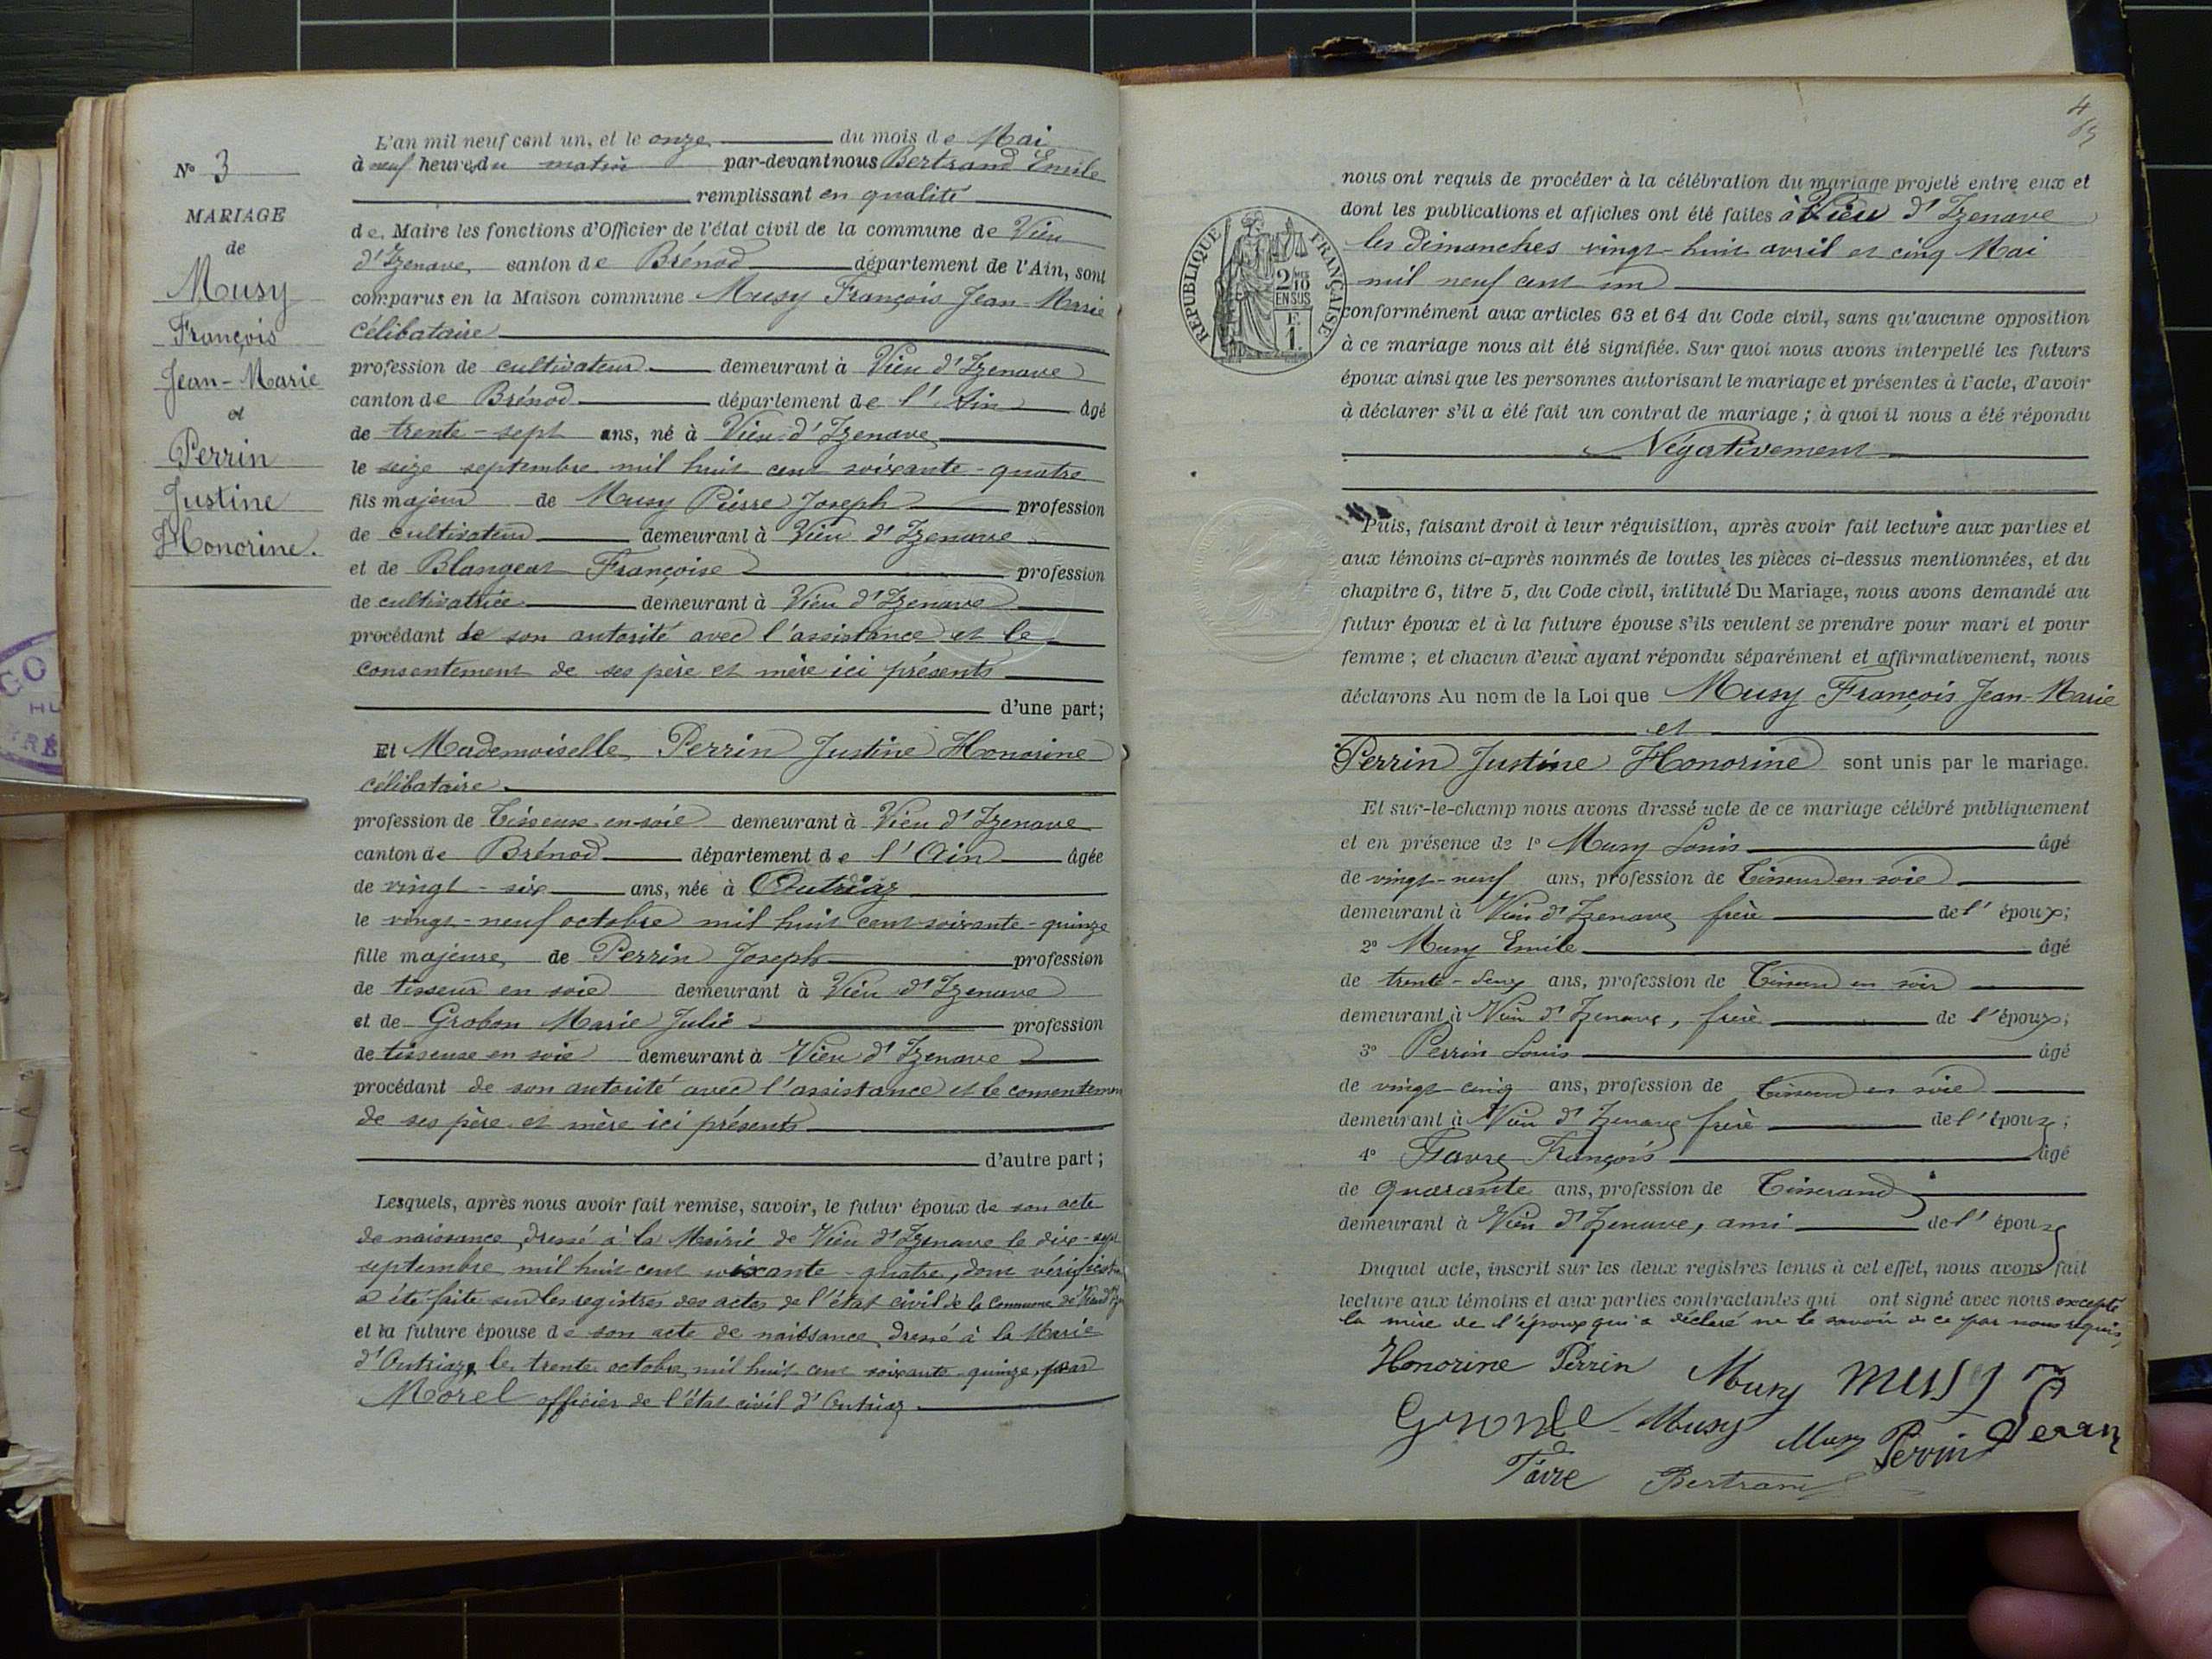 N° 3
MARIAGE
de
Musy
François
Jean-Marie
et
Perrin
Justine
Honorine.
L'an mil neuf cent un, et le onze du mois de Mai
à neuf heures du matin par-devant nous Bertrand Emile
remplissant en qualité
de Maire les fonctions d'Officier de l'état civil de la commune de Vieu
d'Izenave, canton de Brénod département de l'Ain, sont
comparus en la Maison commune Musy François Jean-Marie
célibataire
profession de cultivateur demeurant à Vieu d'Izenave
canton de Brénod département de l'Ain âgé
de trente-sept ans, né à Vieu d'Izenave
le seize septembre mil huit cent soixante-quatre
fils majeur de Musy Pierre Joseph profession
de cultivateur demeurant à Vieu d'Izenave
et de Blangeat Françoise profession
de cultivatrice demeurant à Vieu d'Izenave
procédant de son autorité avec l'assistance et le
consentement de ses père et mère ici présents
d'une part;
Et Mademoiselle Perrin Justine Honorine
célibataire
profession de Tisseuse en soie demeurant à Vieu d'Izenave
canton de Brénod département de l'Ain âgée
de vingt-six ans, née à Outriaz
le vingt-neuf octobre mil huit cent soixante-quinze
fille majeure, de Perrin Joseph profession
de tisseur en soie demeurant à Vieu d'Izenave
et de Grobon Marie Julie profession
de tisseuse en soie demeurant à Vieu d'Izenave
procédant de son autorité avec l'assistance et le consentemen
de ses père et mère ici présents
d'autre part;
Lesquels, après nous avoir fait remise, savoir, le futur époux de son acte
de naissance, dressé à la Mairie de Vieu d'Izenave le dix-sept
septembre mil huit cent soixante-quatre, dont vérification
a été faite sur les registres des actes de l'état civil de la Commune de
et la future épouse de son acte de naissance, dressé à la Mairie
d'Outriaz, le trente octobre mil huit cent soixante-quinze, par
Morel officier de l'état civil d'Outriaz
4
nous ont requis de procéder à la célébration du mariage projeté entre eux et
dont les publications et affiches ont été faites à Vieu d'Izenave
les dimanches vingt-huit avril et cinq Mai
mil neuf cent un
RÉPUBLIQUE FRANÇAISE
2/10
EN SUS
F.
1.
conformément aux articles 63 et 64 du Code civil, sans qu'aucune opposition
à ce mariage nous ait été signifiée. Sur quoi nous avons interpellé les futurs
époux ainsi que les personnes autorisant le mariage et présentes à l'acte, d'avoir
à déclarer s'il a été fait un contrat de mariage; à quoi il nous a été répondu
Négativement
Puis, faisant droit à leur réquisition, après avoir fait lecture aux parties et
aux témoins ci-après nommés de toutes les pièces ci-dessus mentionnées, et du
chapitre 6, titre 5, du Code civil, intitulé Du Mariage, nous avons demandé au
futur époux et à la future épouse s'ils veulent se prendre pour mari et pour
femme; et chacun d'eux ayant répondu séparément et affirmativement, nous
déclarons Au nom de la Loi que Musy François Jean-Marie
et
Perrin Justine Honorine sont unis par le mariage.
Et sur-le-champ nous avons dressé acte de ce mariage célébré publiquement
et en présence de 1° Musy Louis âgé
de vingt-neuf ans, profession de Tisseur en soie
demeurant à Vieu d'Izenave frère de l'époux;
2° Musy Emile âgé
de trente-deux ans, profession de Tisseur en soie
demeurant à Vieu d'Izenave, frère de l'époux;
3° Perrin Louis âgé
de vingt-cinq ans, profession de Tisseur en soie
demeurant à Vieu d'Izenave frère de l'épouse;
4° François âgé
de quarante ans, profession de Tisserand
demeurant à Vieu d'Izenave, ami de l'époux
Duquel acte, inscrit sur les deux registres tenus à cet effet, nous avons fait
lecture aux témoins et aux parties contractantes qui ont signé avec nous excepté
la mère de l'époux qui a déclaré ne le savoir de ce par nous requis
Honorine Perrin Musy Musy
Musy Musy Perrin
Bertrand